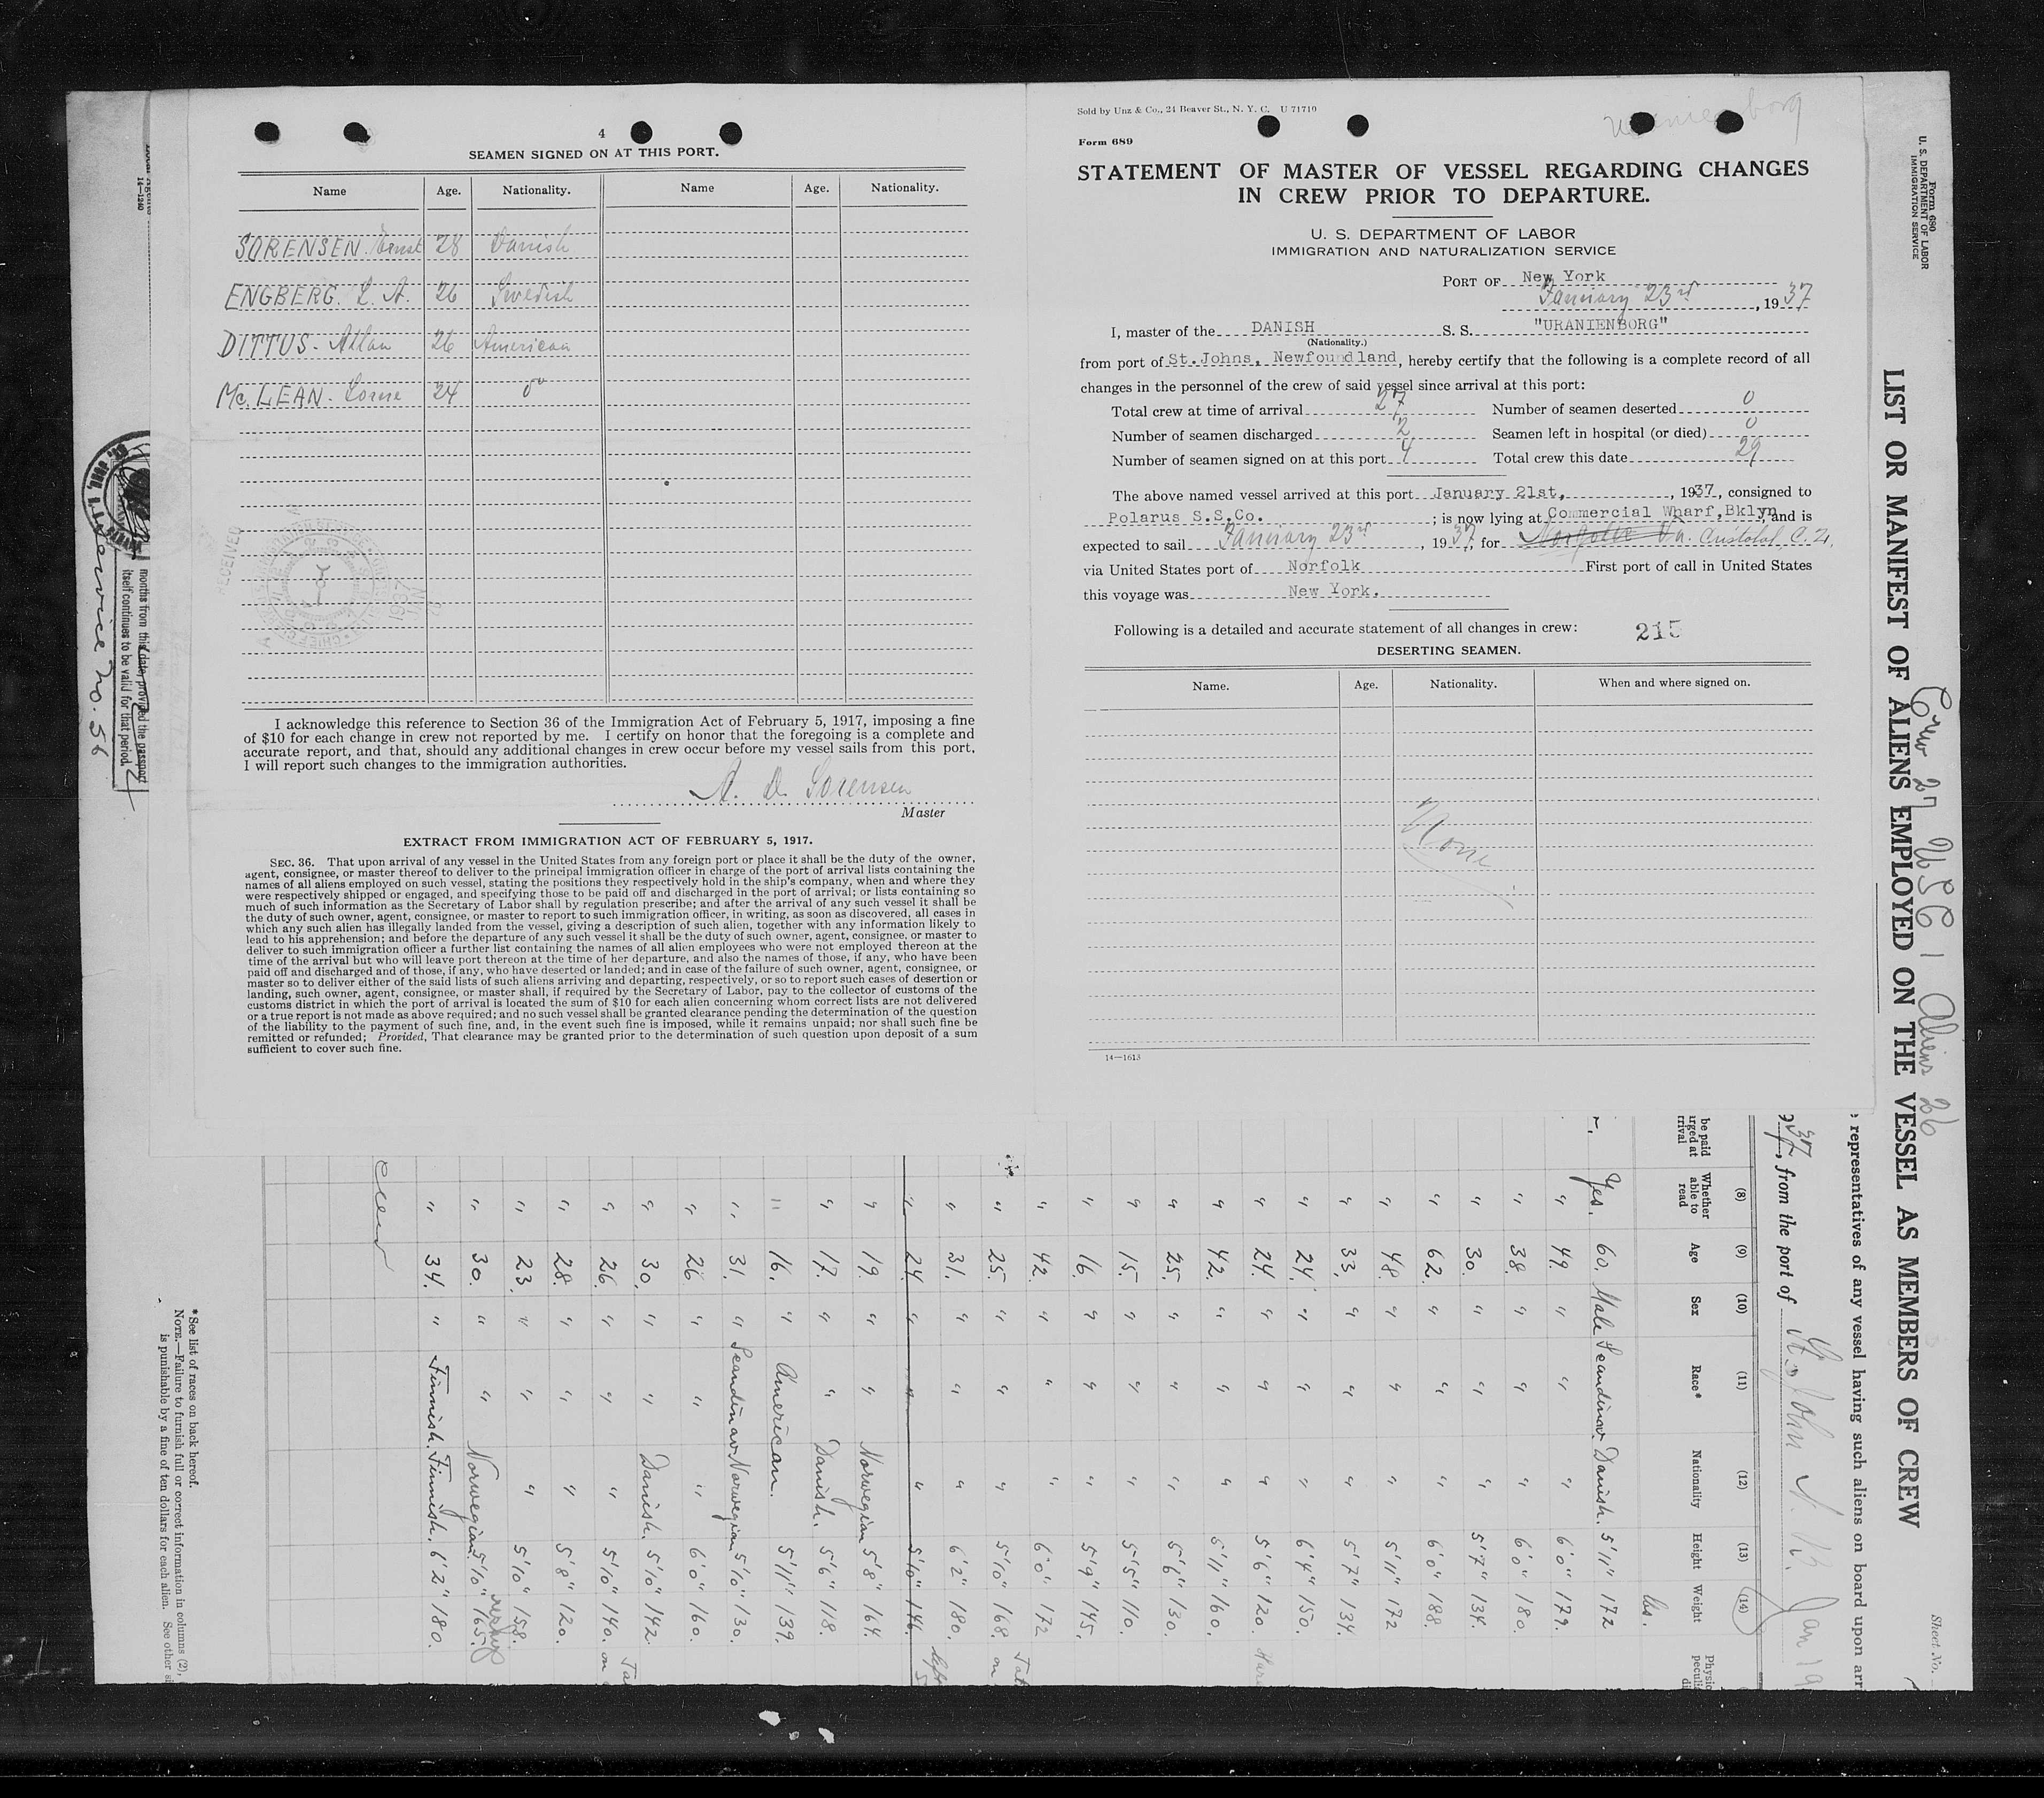 4
SEAMEN SIGNED ON AT THIS PORT.
Name Age. Nationality. Name Age. Nationality.
SORENSEN. Ernst 28 Danish
ENGBERG. L. A. 26 Swedish
DITTUS. Allan 26 American
Mc.LEAN. Lorne 24 do
I acknowledge this reference to Section 36 of the Immigration Act of February 5, 1917, imposing a fine
of $10 for each change in crew not reported by me. I certify on honor that the foregoing is a complete and
accurate report, and that, should any additional changes in crew occur before my vessel sails from this port,
I will report such changes to the immigration authorities.
A. D. Sorensen
Master
EXTRACT FROM IMMIGRATION ACT OF FEBRUARY 5, 1917.
SEC. 36. That upon arrival of any vessel in the United States from any foreign port or place it shall be the duty of the owner,
agent, consignee, or master thereof to deliver to the principal immigration officer in charge of the port of arrival lists containing the
names of all aliens employed on such vessel, stating the positions they respectively hold in the ship's company, when and where they
were respectively shipped or engaged, and specifying those to be paid off and discharged in the port of arrival; or lists containing so
much of such information as the Secretary of Labor shall by regulation prescribe; and after the arrival of any such vessel it shall be
the duty of such owner, agent, consignee, or master to report to such immigration officer, in writing, as soon as discovered, all cases in
which any such alien has illegally landed from the vessel, giving a description of such alien, together with any information likely to
lead to his apprehension; and before the departure of any such vessel it shall be the duty of such owner, agent, consignee, or master to
deliver to such immigration officer a further list containing the names of all alien employees who were not employed thereon at the
time of the arrival but who will leave port thereon at the time of her departure, and also the names of those, if any, who have been
paid off and discharged and of those, if any, who have deserted or landed; and in case of the failure of such owner, agent, consignee, or
master so to deliver either of the said lists of such aliens arriving and departing, respectively, or so to report such cases of desertion or
landing, such owner, agent, consignee, or master shall, if required by the Secretary of Labor, pay to the collector of customs of the
customs district in which the port of arrival is located the sum of $10 for each alien concerning whom correct lists are not delivered
or a true report is not made as above required; and no such vessel shall be granted clearance pending the determination of the question
of the liability to the payment of such fine, and, in the event such fine is imposed, while it remains unpaid; nor shall such fine be
remitted or refunded; Provided, That clearance may be granted prior to the determination of such question upon deposit of a sum
sufficient to cover such fine.
Sold by Unz & Co., 24 Beaver St., N. Y. C. U 71710
Form 689
STATEMENT OF MASTER OF VESSEL REGARDING CHANGES
IN CREW PRIOR TO DEPARTURE.
U. S. DEPARTMENT OF LABOR
IMMIGRATION AND NATURALIZATION SERVICE
PORT OF New York
January 23rd, 1937
I, master of the DANISH S. S. "URANIENBORG"
(Nationality.)
from port of St.Johns, Newfoundland, hereby certify that the following is a complete record of all
changes in the personnel of the crew of said vessel since arrival at this port:
Total crew at time of arrival 27 Number of seamen deserted 0
Number of seamen discharged 2 Seamen left in hospital (or died) 0
Number of seamen signed on at this port 4 Total crew this date 29
The above named vessel arrived at this port January 21st, , 1937, consigned to
Polarus S.S.Co. ; is now lying at Commercial Wharf,Bklyn, and is
expected to sail January 23rd, 1937, for Norfolk Va. Cristobal, C. Z.
via United States port of Norfolk First port of call in United States
this voyage was New York.
Following is a detailed and accurate statement of all changes in crew: 215
DESERTING SEAMEN.
Name. Age. Nationality. When and where signed on.
None
14—1613
Form 680
U. S. DEPARTMENT OF LABOR
IMMIGRATION SERVICE
LIST OR MANIFEST OF ALIENS EMPLOYED ON THE VESSEL AS MEMBERS OF CREW
Sheet No.
Crew 27 USC 1 Aliens 26
representatives of any vessel having such aliens on board upon arr
37, from the port of St. John N. B. Jan 19
(8) (9) (10) (11) (12) (13) (14)
Whether able to read Age Sex Race* Nationality Height Weight
lbs.
Yes. 60. Male Scandinav. Danish. 5'11" 172
" 49. " " " 6'0" 179.
" 38. " " " 6'0" 180.
" 30. " " " 5'7" 134.
" 62. " " " 6'0" 188.
" 48. " " " 5'11" 172
" 33. " " " 5'7" 134.
" 24. " " " 6'4" 150.
" 24. " " " 5'6" 120.
" 42. " " " 5'11" 160.
" 25. " " " 5'6" 130.
" 15. " " " 5'5" 110.
" 16. " " " 5'9" 145.
" 42. " " " 6'0" 172
" 25. " " " 5'10" 168.
" 31. " " " 6'2" 180.
" 24. " " " 5'10" 146.
" 19. " " Norwegian 5'8" 164.
" 17. " " Danish. 5'6" 118.
" 16. " American. 5'11" 139.
" 31. " Scandinav. Norwegian 5'10" 130.
" 26. " " " 6'0" 160.
" 30. " " Danish. 5'10" 142.
" 26. " " " 5'10" 140.
" 28. " " " 5'8" 120.
" 23. " " " 5'10" 158.
" 30. " " Norwegian 5'10" 165.
" 34. " Finnish. Finnish. 6'2" 180.
*See list of races on back hereof.
NOTE.—Failure to furnish full or correct information in columns (2),
is punishable by a fine of ten dollars for each alien. See other si
months from this date, provided the passport
itself continues to be valid for that period.
Service No. 56
14—1240
RECEIVED